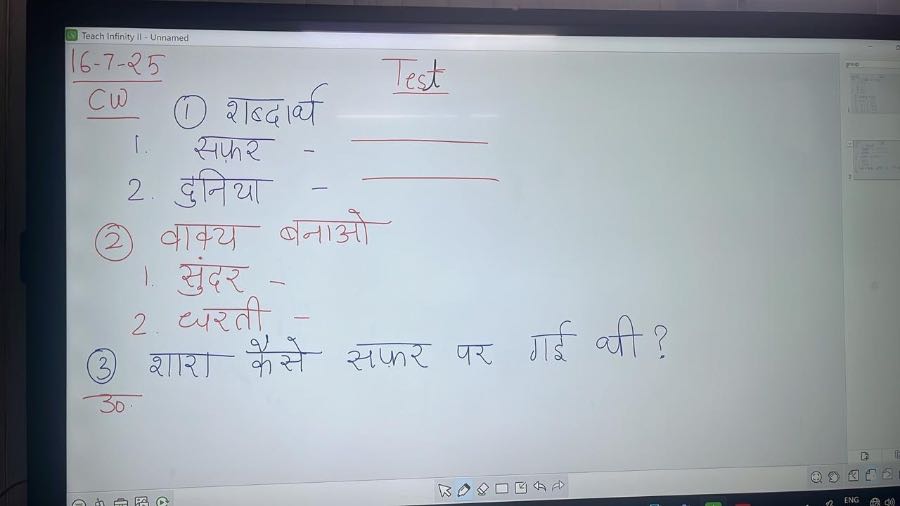 Teach Infinity II - Unnamed
16-7-25
Test
CW
① शब्दार्थ
1. सफ़र -
2. दुनिया -
② वाक्य बनाओ
1. सुंदर -
2. धरती -
③ शारा कैसे सफ़र पर गई थी?
30.
group
ENG